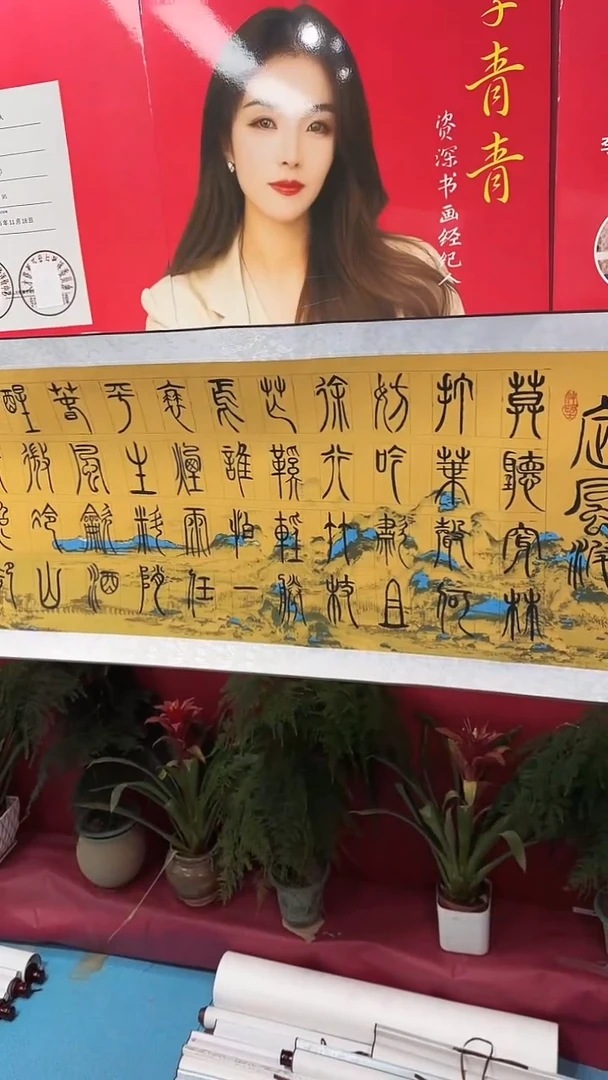 青青
资深书画经纪人
定風波
莫聽穿林
打葉聲何
妨吟嘯且
徐行竹杖
芒鞵輕勝
馬誰怕一
蓑煙雨任
平生料陗
春風龡酒
醒微冷山